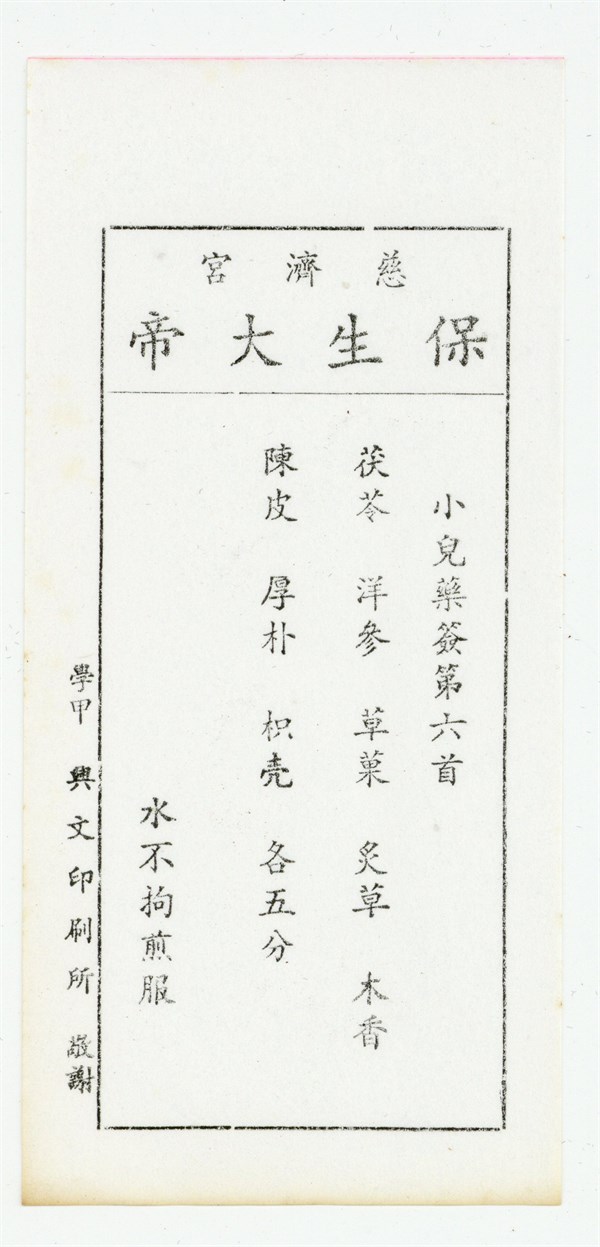 慈濟宮
保生大帝
小兒藥簽第六首
茯苓 洋參 草菓 炙草 木香
陳皮 厚朴 枳壳 各五分
水不拘煎服
學甲 興文印刷所 敬謝